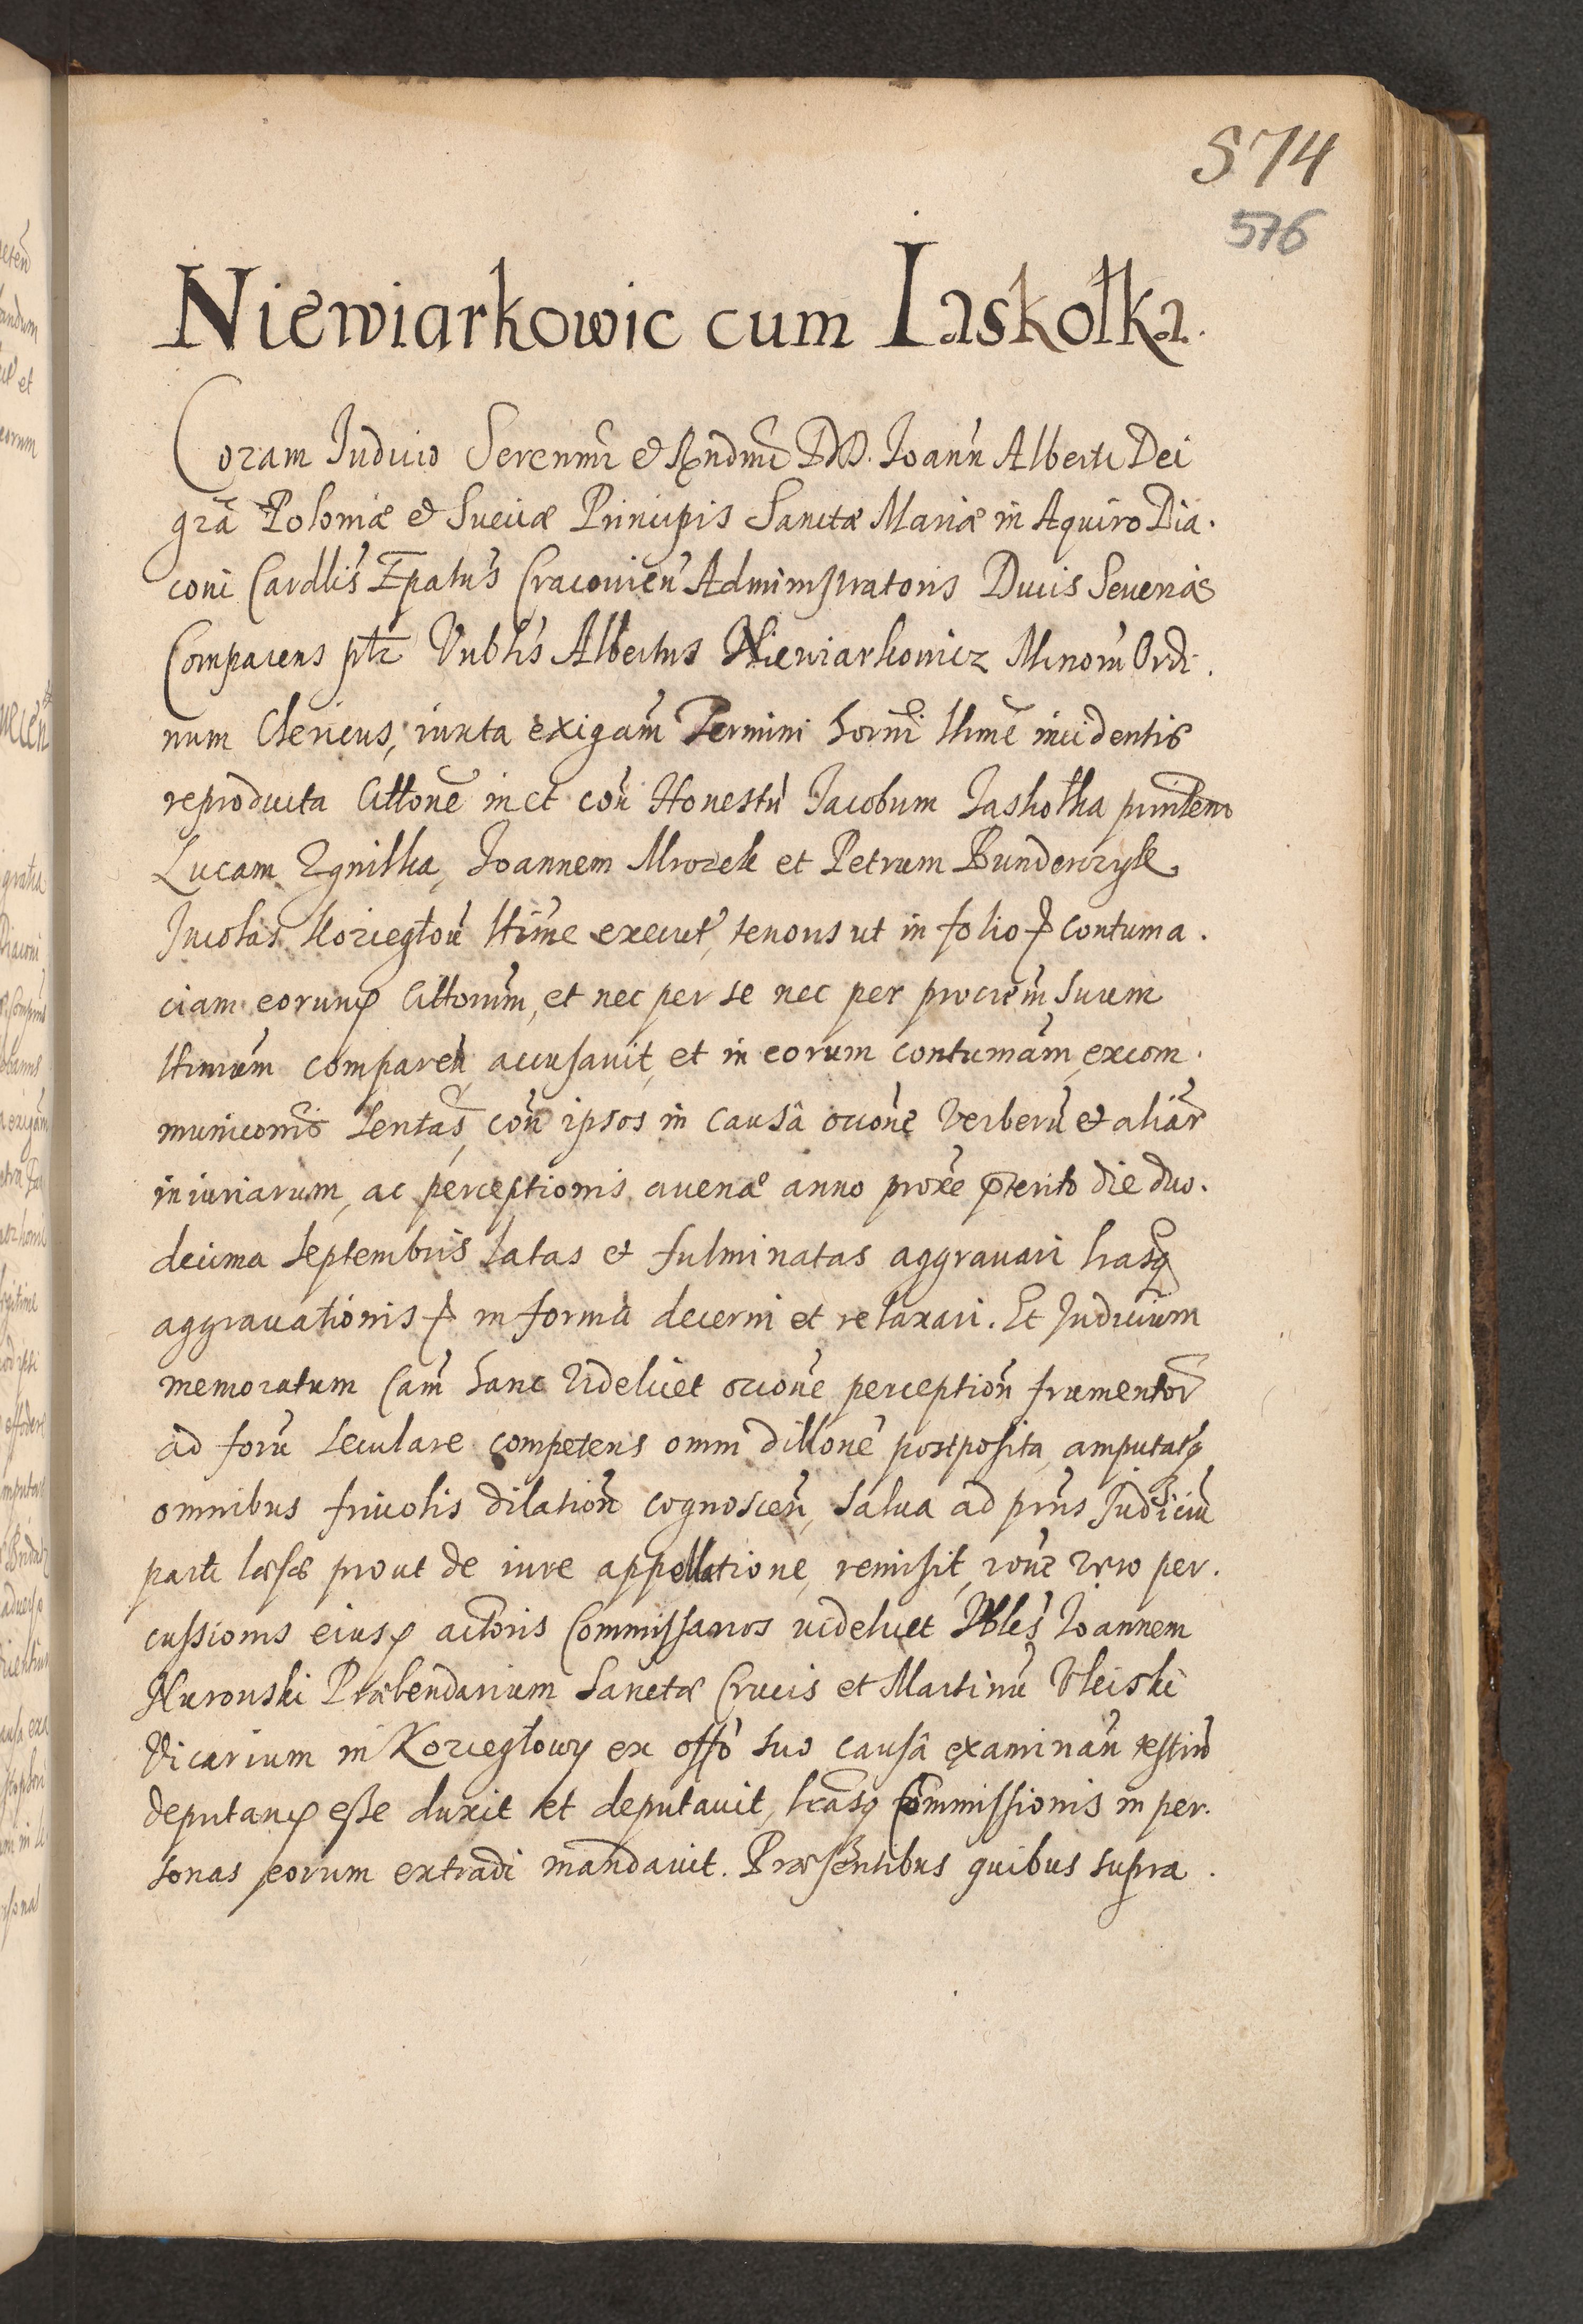 574
576
Niewiarkowic cum Iaskołka.
Coram Iudicio Serenmi & Rndmi DD. Ioann Alberti Dei
gra Poloniæ & Sueciæ Principis Sanctæ Mariæ in Aquiro Dia.
coni Cardlis Epatus Cracovien Administratoris Ducis Severiæ
Comparens Vnblis Albertus Niewiarkowicz Minoru Ordi.
num Clericus, iuxta exigam Termini horni ltime incidentis
reproducta Cittone in et con Honestu Iacobum Iaskołka
Lucam Zgniłka, Ioannem Mrozek et Petrum Bunderczyk
Incolas Koziegłow ltime execut, tenoris ut in folio contuma.
ciam eorunq Cittorum, et nec per se nec per procrem suum
ltimum comparen accusavit, et in eorum contumam excom.
municonis sentas con ipsos in causâ ocione verberu & aliar
iniuriarum, ac perceptionis avenæ anno proxe pterito die duo.
decima septembris latas et fulminatas aggravari lrasq
aggravationis in forma decerni et relaxari. Et Iudicium
memoratum Cam hanc videlicet ocione perception frumentor
ad foru seculare competens omni dillone postposita, amputatisq
omnibus frivolis dilation cognoscen, salva ad prns Iudiciu
parti læsæ prout de iure appellatione, remisit, rone vero per.
cussionis eiusq actoris Commissarios videlicet Vbles Ioannem
Nurowski Præbendarium Sanctæ Crucis et Martinu Vleiski
Vicarium in Kozieglowy ex offo suo causâ examinan testiu
deputanq esse duxit et deputavit, lrasq Commissionis in per.
sonas eorum extradi mandavit. Præsentibus quibus supra.